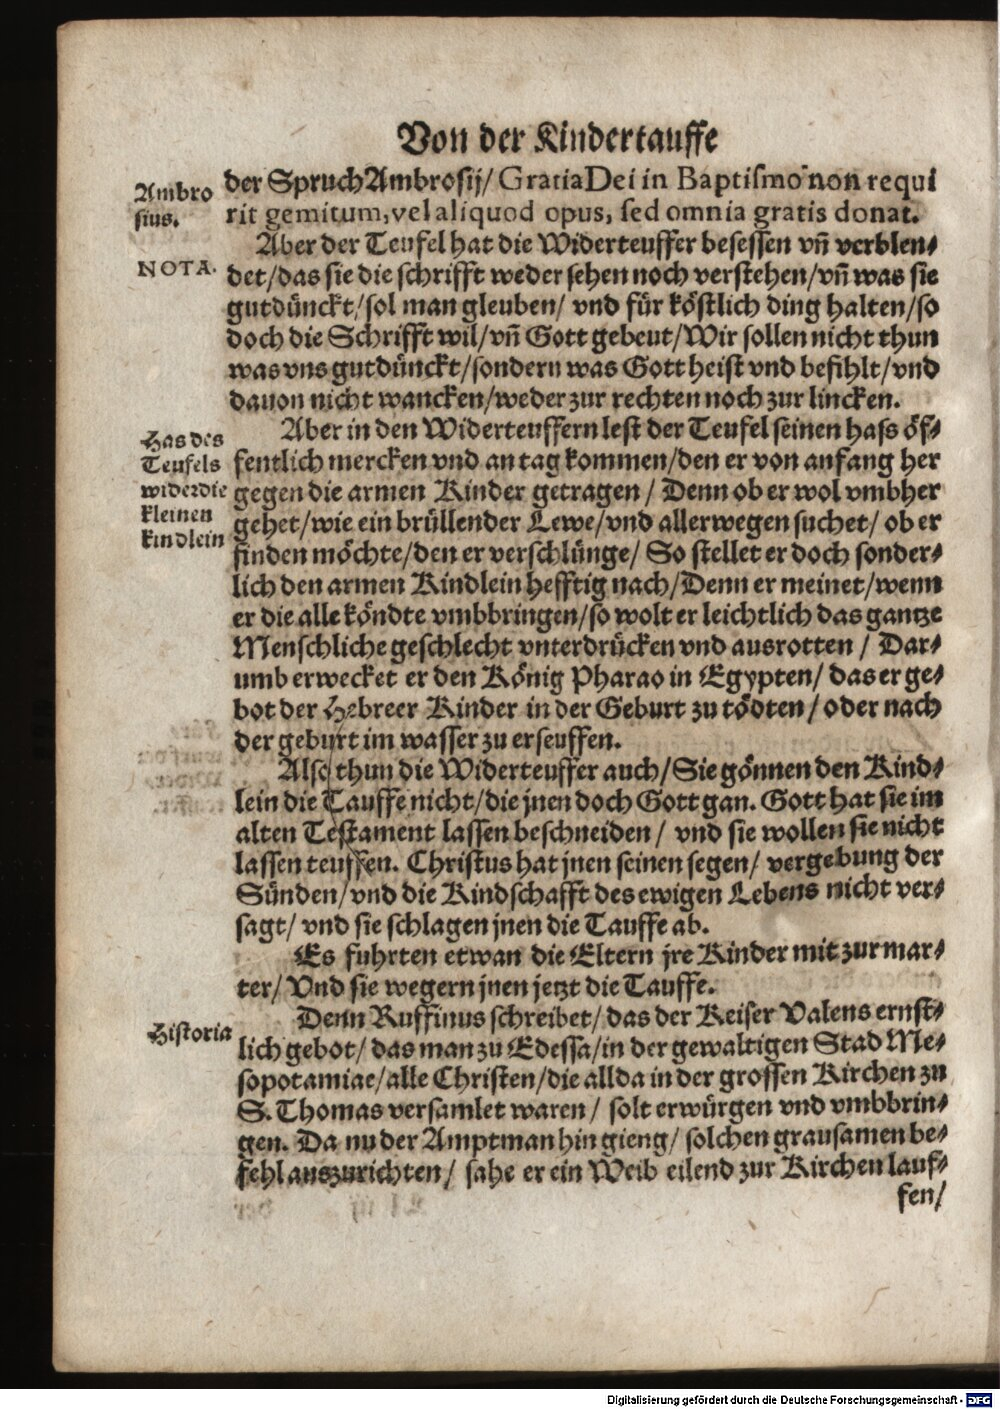 Von der Kindertauffe
Ambro
sius.
der Spruch Ambrosij/ Gratia Dei in Baptismo non requi
rit gemitum, vel aliquod opus, sed omnia gratis donat.
Aber der Teufel hat die Widerteuffer besessen vñ verblen⸗
NOTA.
det/das sie die schrifft weder sehen noch verstehen/vñ was sie
gutdünckt/sol man gleuben/ vnd für köstlich ding halten/so
doch die Schrifft wil/vñ Gott gebeut/Wir sollen nicht thun
was vns gutdünckt/sondern was Gott heist vnd befihlt/vnd
dauon nicht wancken/weder zur rechten noch zur lincken.
Has des
Teufels
wider die
kleinen
kindlein
Aber in den Widerteuffern lest der Teufel seinen hass öf⸗
fentlich mercken vnd an tag kommen/den er von anfang her
gegen die armen Kinder getragen/ Denn ob er wol vmbher
gehet/wie ein brüllender Lewe/vnd allerwegen suchet/ ob er
finden möchte/den er verschlünge/ So stellet er doch sonder⸗
lich den armen Kindlein hefftig nach/Denn er meinet/wenn
er die alle köndte vmbbringen/so wolt er leichtlich das gantze
Menschliche geschlecht vnterdrücken vnd ausrotten/ Dar⸗
umb erwecket er den König Pharao in Egypten/ das er ge⸗
bot der Hebreer Kinder in der Geburt zu tödten/ oder nach
der geburt im wasser zu erseuffen.
Also thun die Widerteuffer auch/Sie gönnen den Kind⸗
lein die Tauffe nicht/die jnen doch Gott gan. Gott hat sie im
alten Testament lassen beschneiden/ vnd sie wollen sie nicht
lassen teuffen. Christus hat jnen seinen segen/ vergebung der
Sünden/vnd die Kindschafft des ewigen Lebens nicht ver⸗
sagt/ vnd sie schlagen jnen die Tauffe ab.
Es fuhrten etwan die Eltern jre Kinder mit zur mar⸗
ter/ Vnd sie wegern jnen jetzt die Tauffe.
Historia
Denn Ruffinus schreibet/ das der Keiser Valens ernst⸗
lich gebot/ das man zu Edessa/in der gewaltigen Stad Me⸗
sopotamiae/alle Christen/die allda in der grossen Kirchen zu
S. Thomas versamlet waren/ solt erwürgen vnd vmbbrin⸗
gen. Da nu der Amptman hin gieng/ solchen grausamen be⸗
fehl auszurichten/ sahe er ein Weib eilend zur Kirchen lauf⸗
fen/
Digitalisierung gefördert durch die Deutsche Forschungsgemeinschaft - DFG